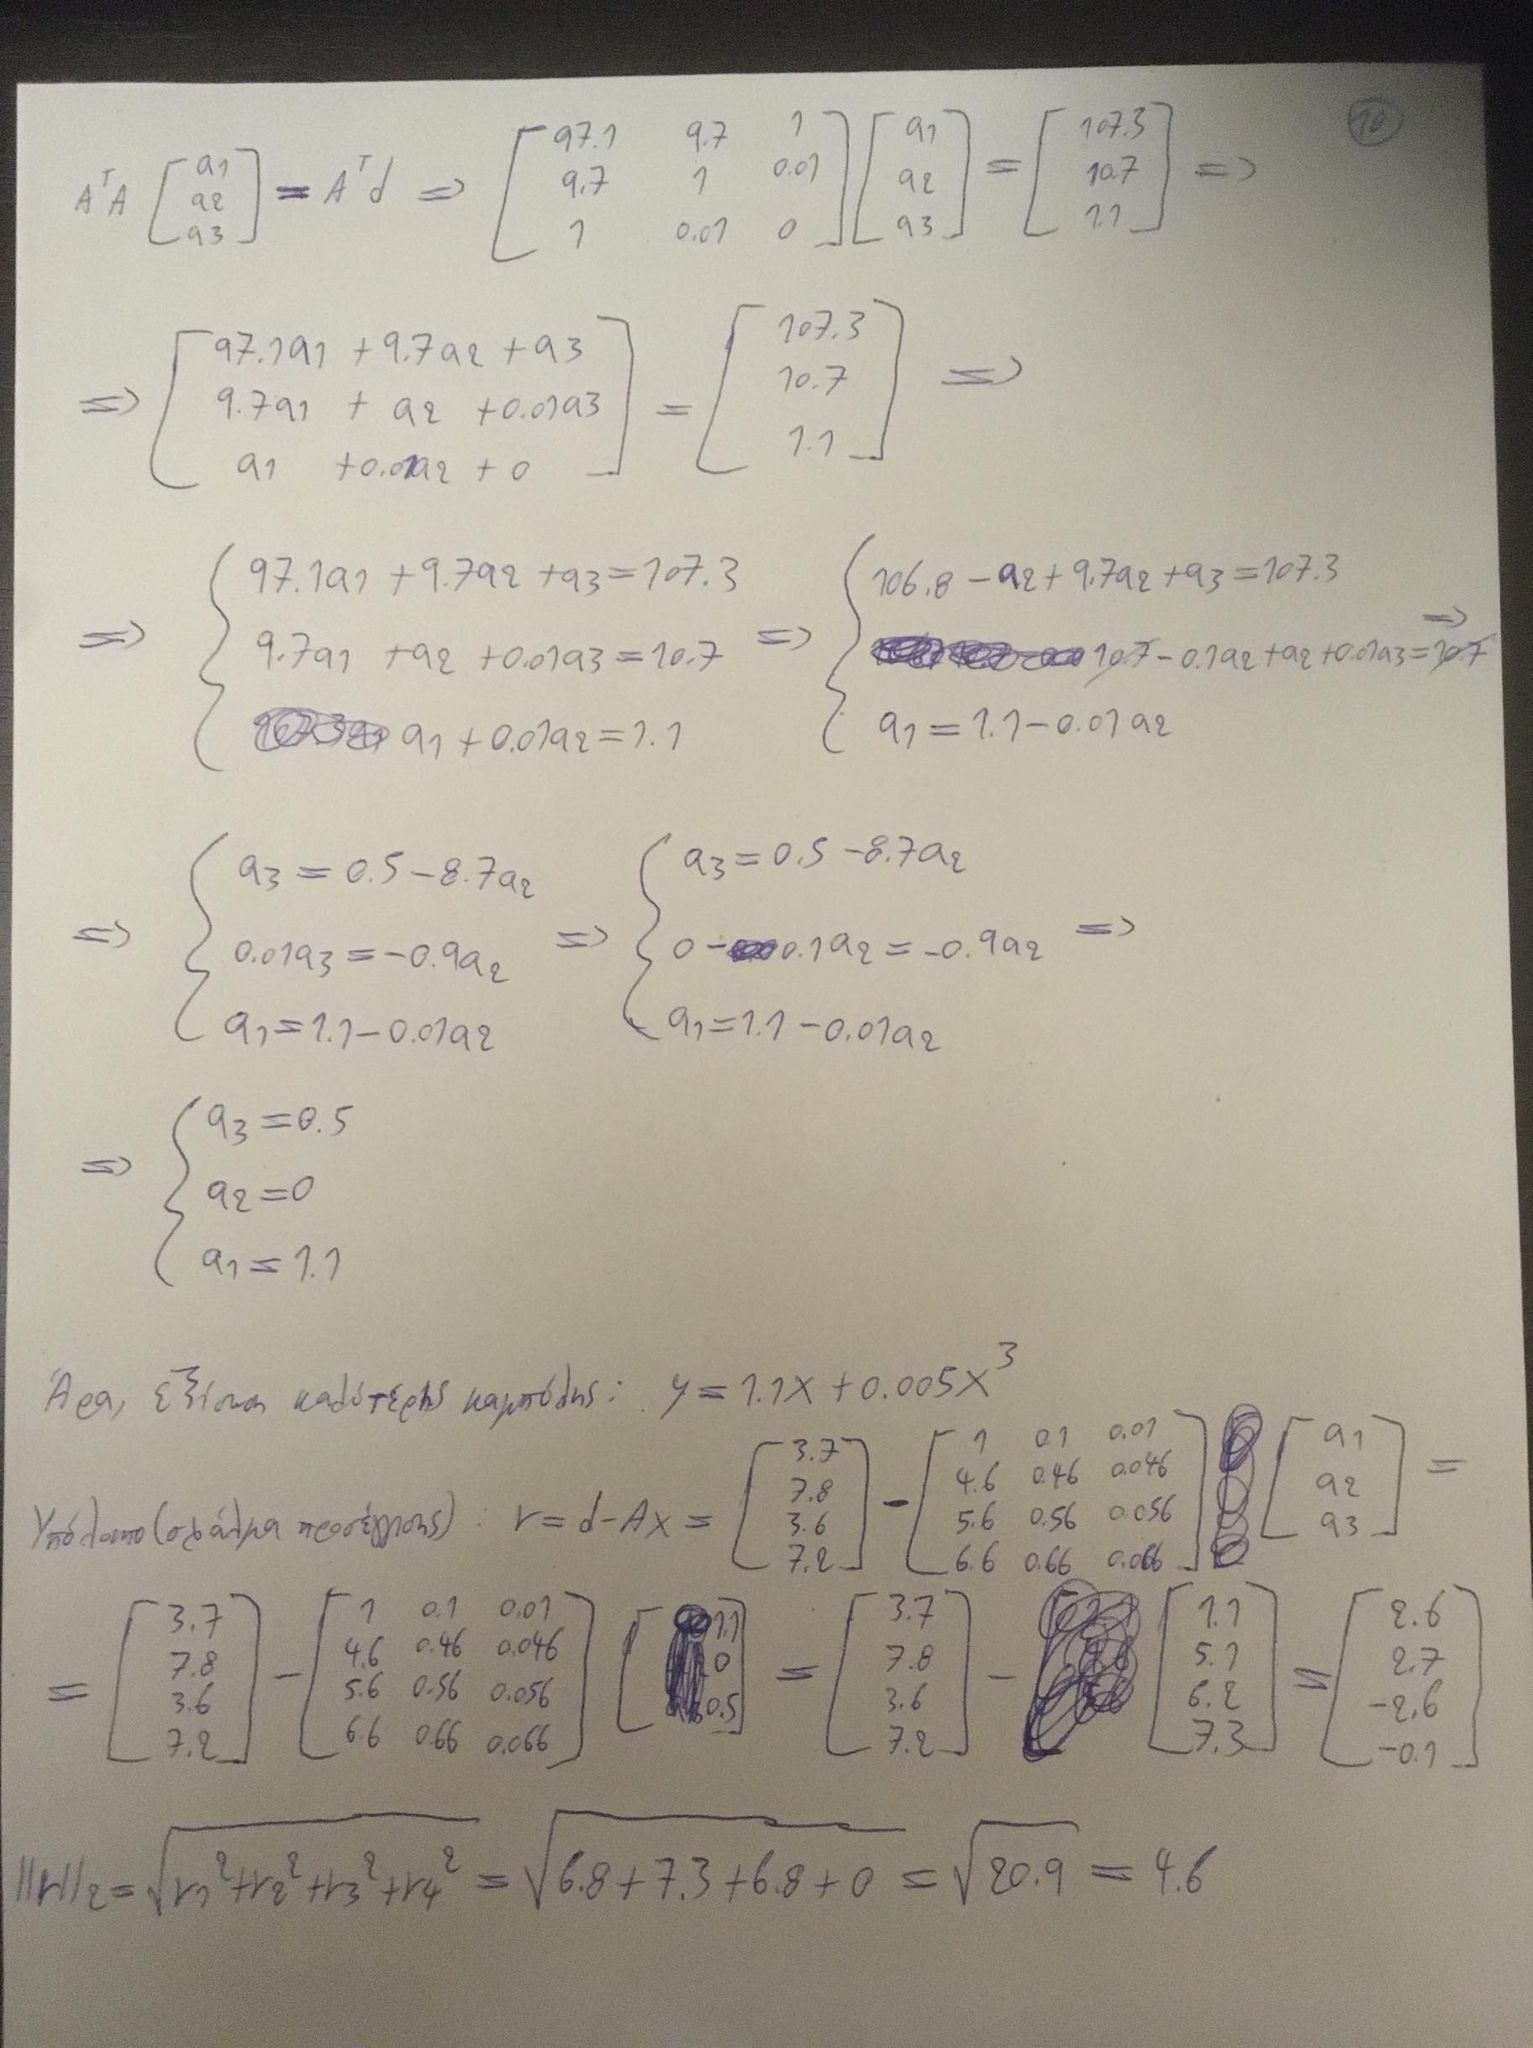 10
AᵀA [a1; a2; a3] = Aᵀd => [97.1 9.7 1; 9.7 1 0.01; 1 0.01 0] [a1; a2; a3] = [107.3; 10.7; 1.1] =>
=> [97.1a1 + 9.7a2 + a3; 9.7a1 + a2 + 0.01a3; a1 + 0.01a2 + 0] = [107.3; 10.7; 1.1] =>
=> { 97.1a1 + 9.7a2 + a3 = 107.3; 9.7a1 + a2 + 0.01a3 = 10.7; a1 + 0.01a2 = 1.1 => { 106.8 - a2 + 9.7a2 + a3 = 107.3; 10.7 - 0.1a2 + a2 + 0.01a3 = 10.7; a1 = 1.1 - 0.01a2 =>
=> { a3 = 0.5 - 8.7a2; 0.01a3 = -0.9a2; a1 = 1.1 - 0.01a2 => { a3 = 0.5 - 8.7a2; 0 - 0.1a2 = -0.9a2; a1 = 1.1 - 0.01a2 =>
=> { a3 = 0.5; a2 = 0; a1 = 1.1
Άρα, εξίσωση καλύτερης καμπύλης: y = 1.1x + 0.005x³
Υπόλοιπο (σφάλμα προσέγγισης): r = d - Ax = [3.7; 7.8; 3.6; 7.2] - [1 0.1 0.01; 4.6 0.46 0.046; 5.6 0.56 0.056; 6.6 0.66 0.066] [a1; a2; a3] =
= [3.7; 7.8; 3.6; 7.2] - [1 0.1 0.01; 4.6 0.46 0.046; 5.6 0.56 0.056; 6.6 0.66 0.066] [1.1; 0; 0.5] = [3.7; 7.8; 3.6; 7.2] - [1.1; 5.1; 6.2; 7.3] = [2.6; 2.7; -2.6; -0.1]
||r||₂ = √(r1² + r2² + r3² + r4²) = √(6.8 + 7.3 + 6.8 + 0) = √20.9 = 4.6